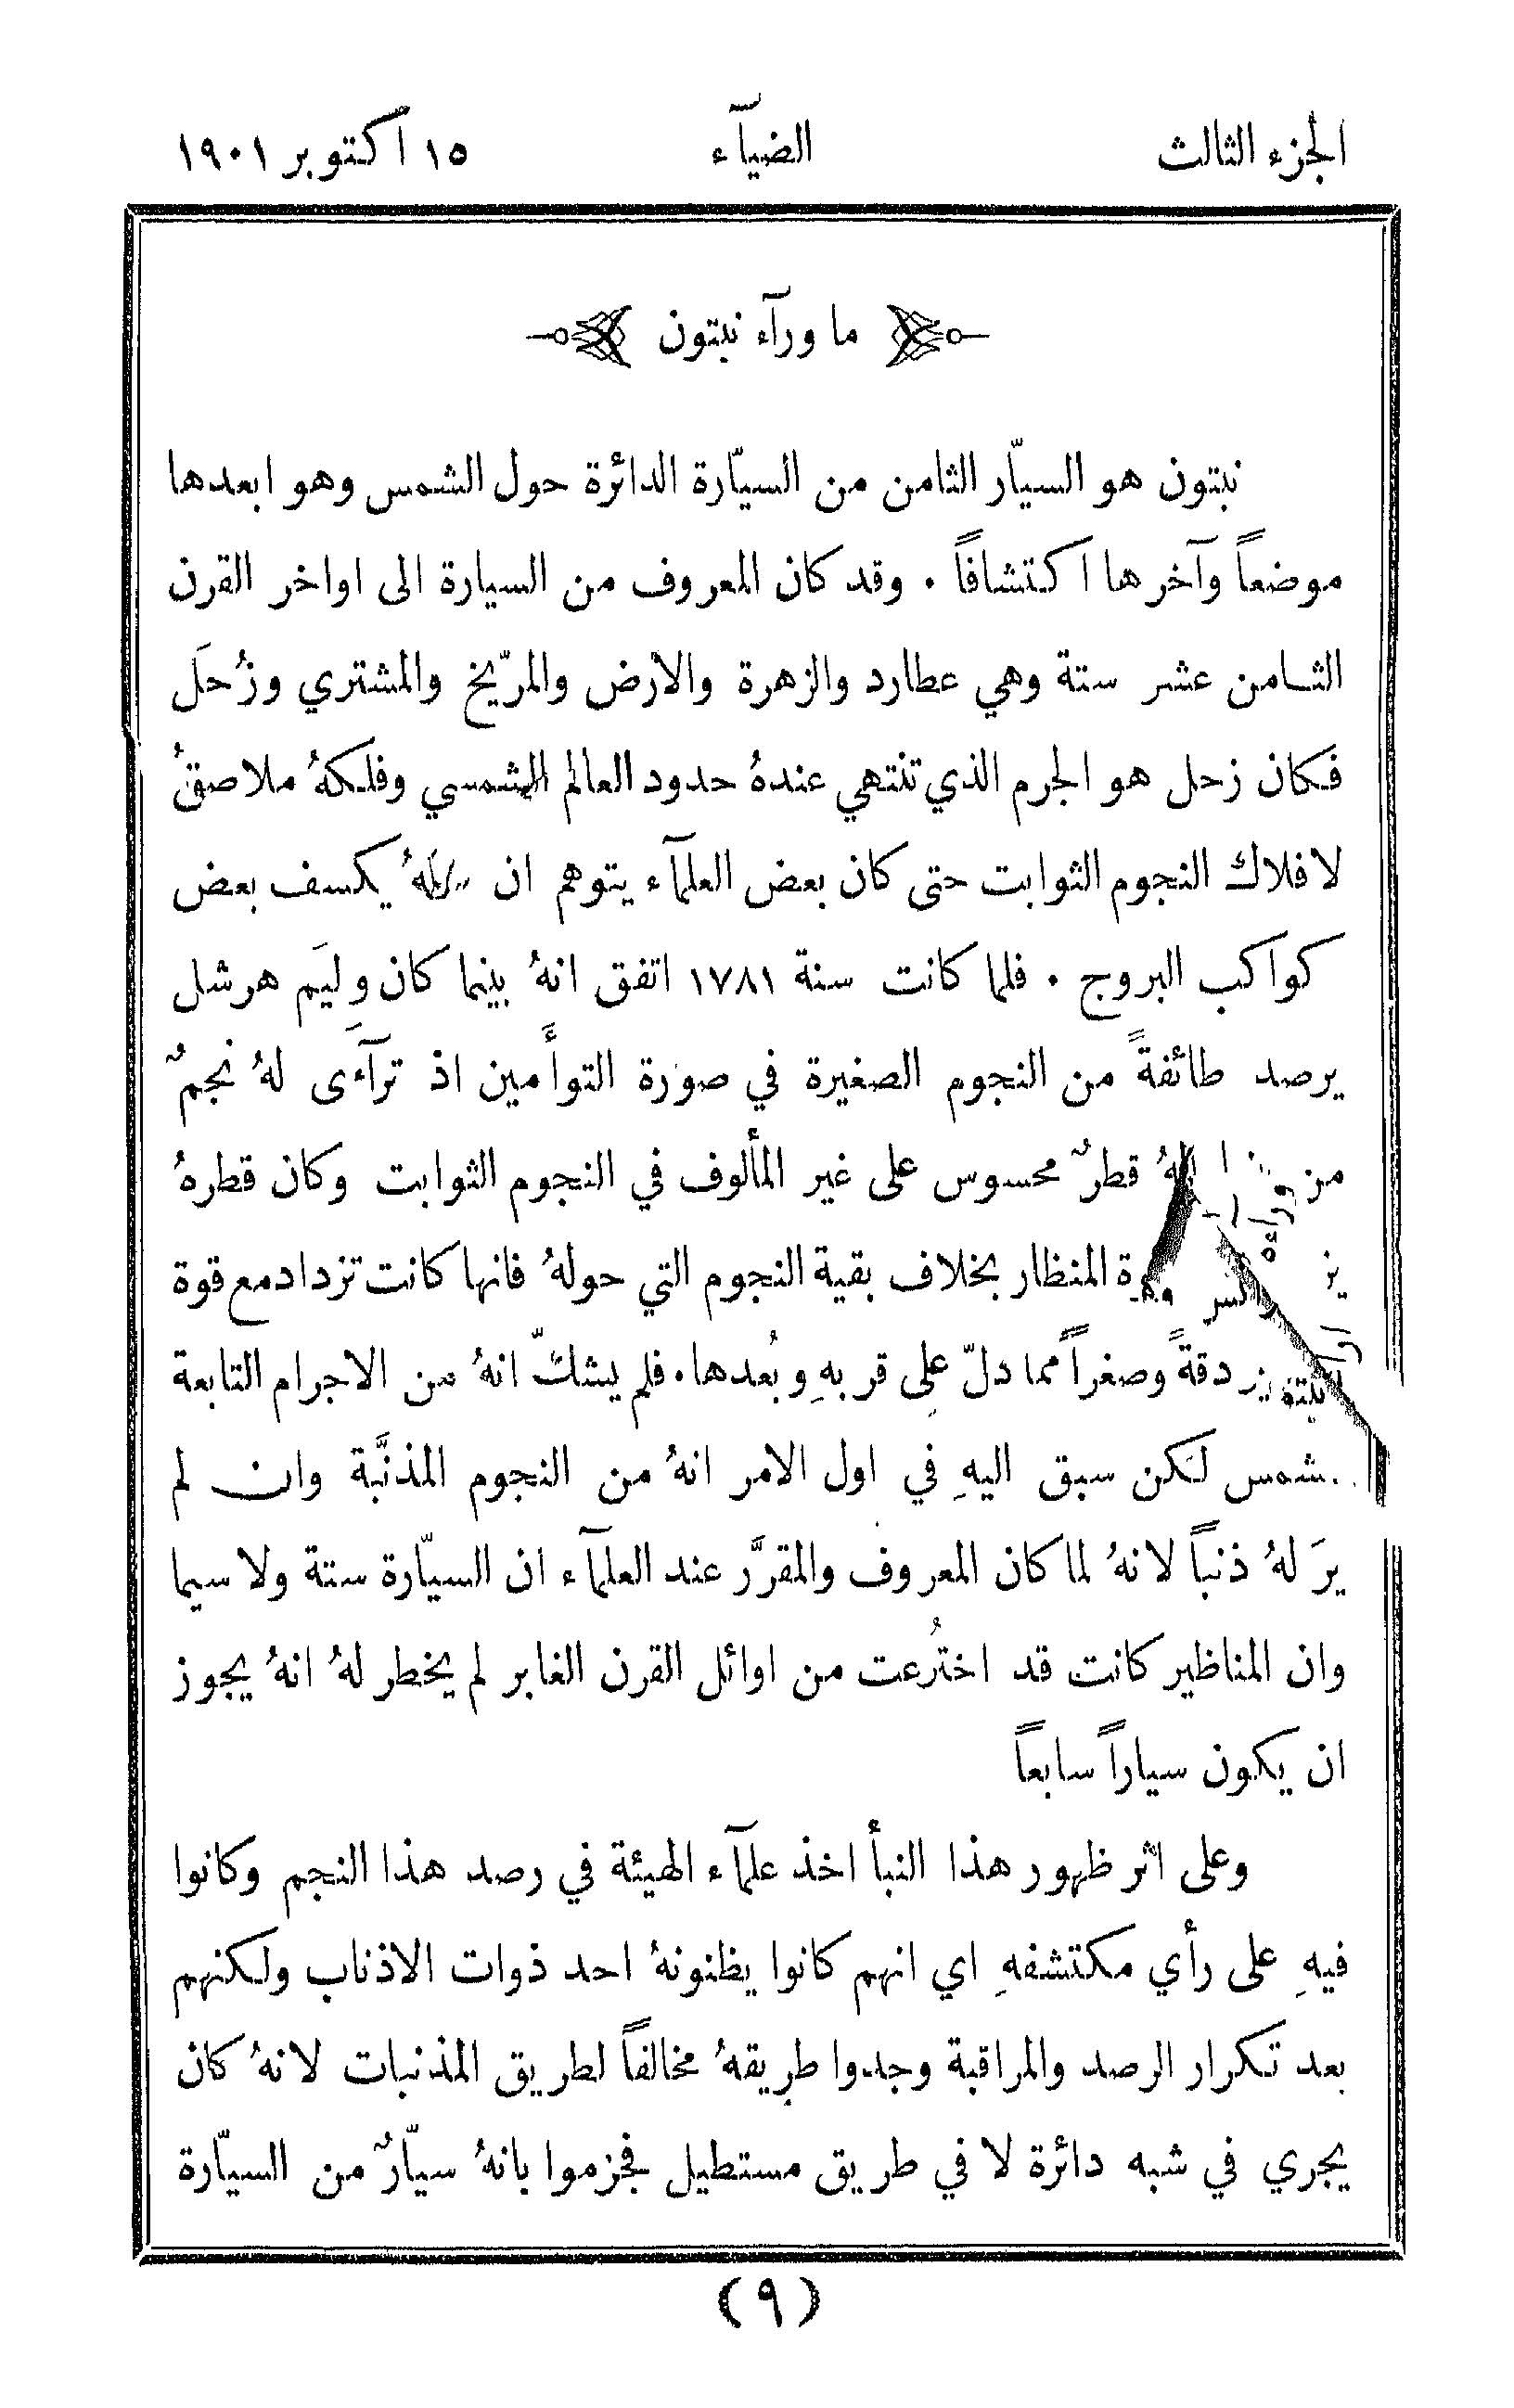 الجزء الثالث الضيآء ١٥ اكتوبر ١٩٠١
ما ورآء نبتون
نبتون هو السيّار الثامن من السيّارة الدائرة حول الشمس وهو ابعدها
موضعاً وآخرها اكتشافاً ٠ وقد كان المعروف من السيارة الى اواخر القرن
الثامن عشر ستة وهي عطارد والزهرة والارض والمرّيخ والمشتري وزُحَل
فكان زحل هو الجرم الذي تنتهي عندهُ حدود العالم الشمسي وفلكهُ ملاصقُ
لافلاك النجوم الثوابت حتى كان بعض العلمآء يتوهم ان يكسف بعض
كواكب البروج ٠ فلما كانت سنة ١٧٨١ اتفق انهُ بينما كان وِليَم هرشل
يرصد طائفةً من النجوم الصغيرة في صورة التوأَمين اذ ترآءَى لهُ نجمٌ
من لهُ قطرٌ محسوس على غير المألوف في النجوم الثوابت وكان قطرهُ
المنظار بخلاف بقية النجوم التي حولهُ فانها كانت تزداد مع قوة
دقةً وصغراً مما دلّ على قربهِ وبُعدها ٠ فلم يشكّ انهُ من الاجرام التابعة
شمس لكن سبق اليهِ في اول الامر انهُ من النجوم المذنَّبة وان لم
يرَ لهُ ذنباً لانهُ لما كان المعروف والمقرَّر عند العلمآء ان السيّارة ستة ولا سيما
وان المناظير كانت قد اختُرعت من اوائل القرن الغابر لم يخطر لهُ انهُ يجوز
ان يكون سياراً سابعاً
وعلى اثر ظهور هذا النبأ اخذ علمآء الهيئة في رصد هذا النجم وكانوا
فيهِ على رأي مكتشفهِ اي انهم كانوا يظنونهُ احد ذوات الاذناب ولكنهم
بعد تكرار الرصد والمراقبة وجدوا طريقهُ مخالفاً لطريق المذنبات لانهُ كان
يجري في شبه دائرة لا في طريق مستطيل فجزموا بانهُ سيّارٌ من السيّارة
(٩)